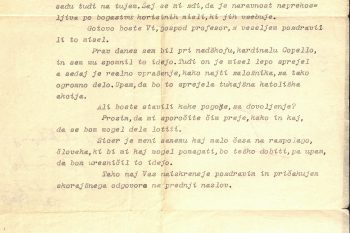 sedu tudi na tujem. Saj se mi zdi, da je naravnost neprekos-
ljiva po bogastvu koristnih misli, ki jih vsebuje.
Gotovo boste Vi, gospod profesor, z veseljem pozdravil
li to misel.
Prav danes sem bil pri nadškofu, kardinalu Copello,
in sem mu spomnil to idejo. Tudi on je misel lepo sprejel
a sedaj je realno vprašanje, kako najti založnika, za tako
ogromno delo. Upam, da bo to sprejela tukajšna katoliška
akcija.
Ali boste stavili kake pogoje, za dovoljenje?
Prosim, da mi sporočite čim preje, kako in kaj,
da se bom mogel dela lotiti.
Sicer je meni samemu kaj malo časa na raspolago,
človeka, ki bi mi kaj mogel pomagati, bo težko dobiti, pa upam,
da bom uresničil to idejo.
Tako naj Vas naiskreneje pozdravim in pričakujem
skorajšnega odgovora na prednji naslov.